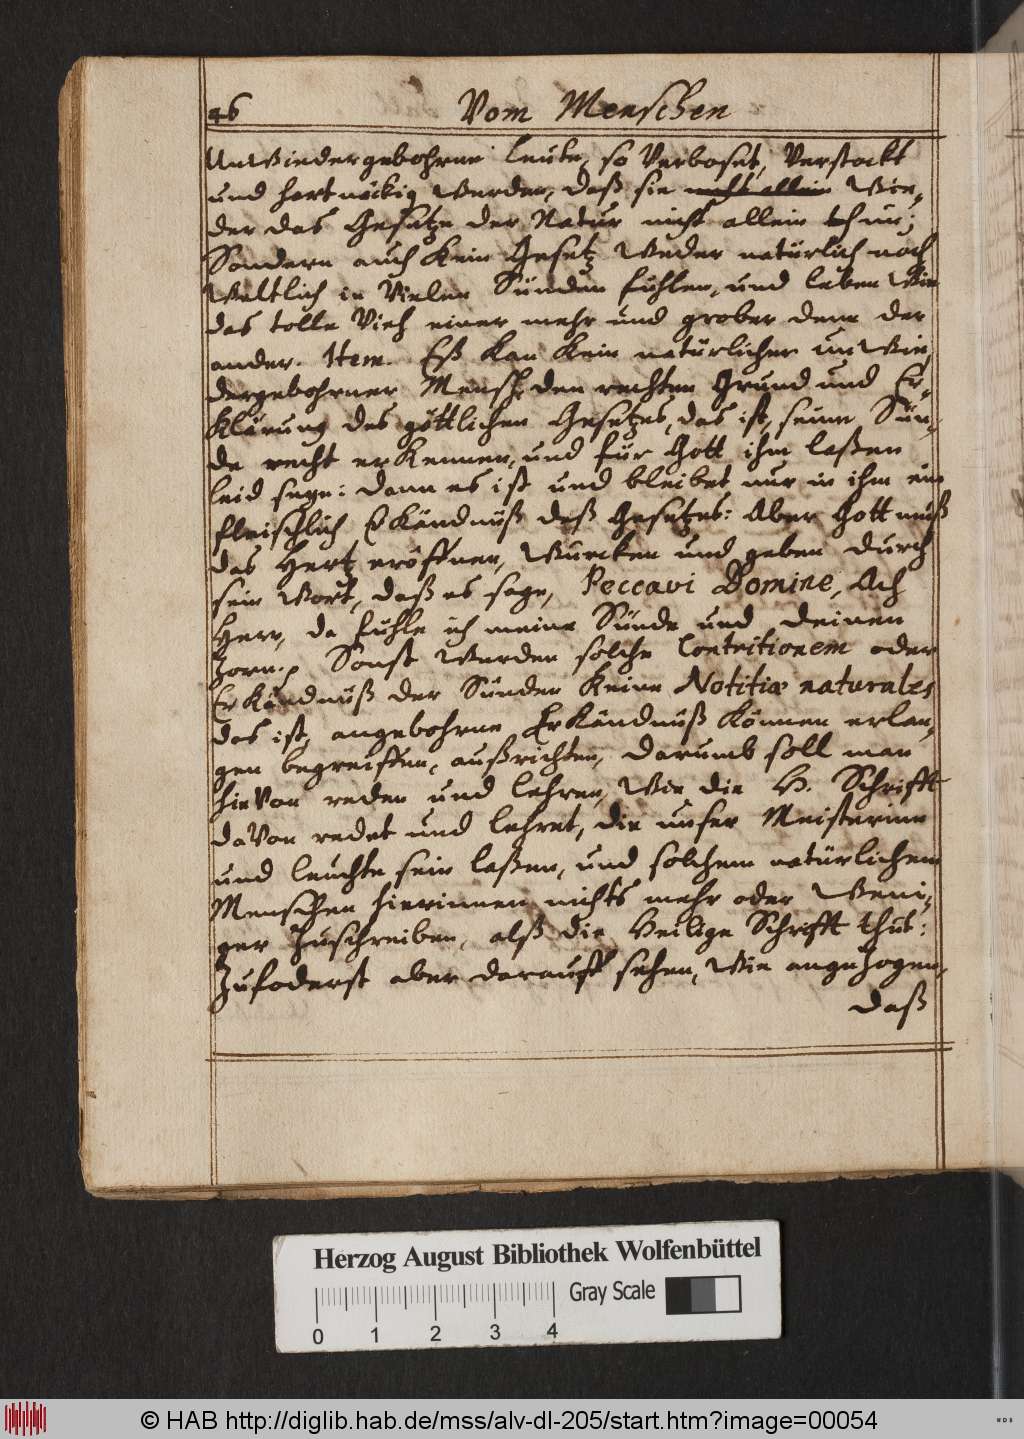 46 Vom Menschen
UnWiedergebohrne leute, so Verboset, Verstockt
und hartnäckig Werden, daß sie nicht allein Wie,
der das Gesetze der Natur nicht allein thun;
Sondern auch Kein Gesetz Weder natürlich noch
Weltlich in Vielen Sünden fühlen, und leben Wie
das tolle Vieh einer mehr und grober denn der
ander. Item. Eß kan Kein natürlicher unWie,
dergebohrner Mensch den rechten Grund und Er,
Klärung des göttlichen Gesetzes, das ist, seine Sün,
de recht erKennen, und für Gott ihm laßen
leid seyn: dann es ist und bleibet nur in ihm ein
fleischlich ErKändnüß deß Gesetzes: Aber Gott muß
das Hertz eröffnen, Wurcken und geben durch
sein Wort, daß es sage, Peccavi Domine, Ach
Herr, da fühle ich meine Sünde und deinen
Zorn. Sonst Werden solche Contritionem oder
ErKändnüß der Sünden Keine Notitiæ naturales
das ist, angebohrne ErKändnüß Können erlan,
gen begreiffen, außrichten, darumb soll man
hieVon reden und lehren, Wie die H. Schrifft
daVon redet und lehret, die unser Meisterinn
und leuchte sein laßen, und solchem natürlichem
Menschen hierinnen nichts mehr oder Weni,
ger Zuschreiben, alß die Heilige Schrifft thut:
Zufoderst aber darauff sehen, Wie angeZogen,
daß
Herzog August Bibliothek Wolfenbüttel
Gray Scale
0 1 2 3 4
© HAB http://diglib.hab.de/mss/alv-dl-205/start.htm?image=00054